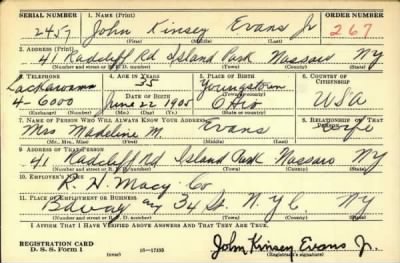 SERIAL NUMBER 1. NAME (Print) ORDER NUMBER
2457 John Kinsey Evans Jr 267
(First) (Middle) (Last)
2. ADDRESS (Print)
41 Radcliff Rd Island Park Nassau NY
(Number and street or R. F. D. number) (Town) (County) (State)
3. TELEPHONE 4. AGE IN YEARS 5. PLACE OF BIRTH 6. COUNTRY OF CITIZENSHIP
Lackawanna 35 Youngstown
DATE OF BIRTH
4-6000 June 22 1905 Ohio USA
(Exchange) (Number) (Mo.) (Day) (Yr.) (State or country)
7. NAME OF PERSON WHO WILL ALWAYS KNOW YOUR ADDRESS 8. RELATIONSHIP OF THAT PERSON
Mrs Madeline M. Evans Wife
(Mr., Mrs., Miss) (First) (Middle) (Last)
9. ADDRESS OF THAT PERSON
41 Radcliff Rd Island Park Nassau NY
(Number and street or R. F. D. number) (Town) (County) (State)
10. EMPLOYER'S NAME
R. H. Macy Co
11. PLACE OF EMPLOYMENT OR BUSINESS
Bdway 34 St. N.Y.C. NY
(Number and street or R. F. D. number) (Town) (County) (State)
I AFFIRM THAT I HAVE VERIFIED ABOVE ANSWERS AND THAT THEY ARE TRUE.
REGISTRATION CARD
D. S. S. FORM 1 16—17105 John Kinsey Evans Jr.
(Registrant's signature)